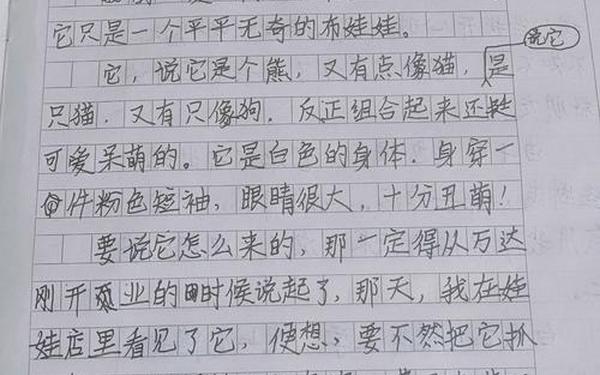 它只是一个平平无奇的布娃娃。
说它
它,说它是个熊,又有点像猫,是
只猫.又有只像狗.反正组合起来还挺
可爱呆萌的。它是白色的身体.身穿一
件粉色短袖,眼睛很大,十分丑萌!
要说它怎么来的,那一定得从万达
刚开业的时候说起了,那天,我在娃
娃店里看见了它,便想,要不然把它抓